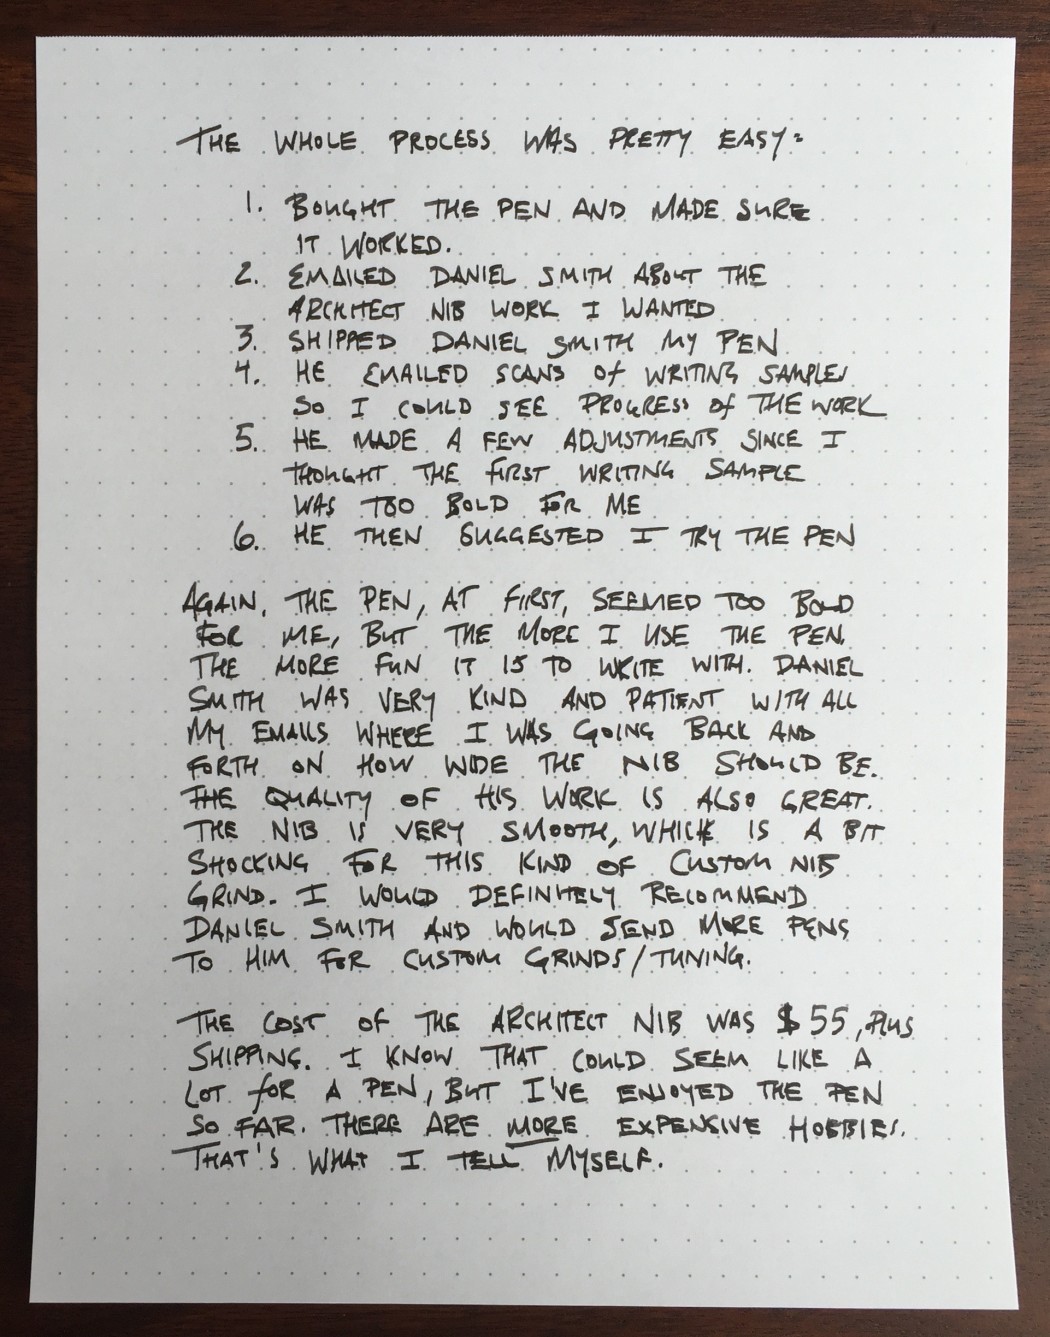 THE WHOLE PROCESS WAS PRETTY EASY:
1. BOUGHT THE PEN AND MADE SURE
IT WORKED.
2. EMAILED DANIEL SMITH ABOUT THE
ARCHITECT NIB WORK I WANTED
3. SHIPPED DANIEL SMITH MY PEN
4. HE EMAILED SCANS OF WRITING SAMPLES
SO I COULD SEE PROGRESS OF THE WORK
5. HE MADE A FEW ADJUSTMENTS SINCE I
THOUGHT THE FIRST WRITING SAMPLE
WAS TOO BOLD FOR ME
6. HE THEN SUGGESTED I TRY THE PEN
AGAIN, THE PEN, AT FIRST, SEEMED TOO BOLD
FOR ME, BUT THE MORE I USE THE PEN
THE MORE FUN IT IS TO WRITE WITH. DANIEL
SMITH WAS VERY KIND AND PATIENT WITH ALL
MY EMAILS WHERE I WAS GOING BACK AND
FORTH ON HOW WIDE THE NIB SHOULD BE.
THE QUALITY OF HIS WORK IS ALSO GREAT.
THE NIB IS VERY SMOOTH, WHICH IS A BIT
SHOCKING FOR THIS KIND OF CUSTOM NIB
GRIND. I WOULD DEFINITELY RECOMMEND
DANIEL SMITH AND WOULD SEND MORE PENS
TO HIM FOR CUSTOM GRINDS/TUNING.
THE COST OF THE ARCHITECT NIB WAS $55, PLUS
SHIPPING. I KNOW THAT COULD SEEM LIKE A
LOT FOR A PEN, BUT I'VE ENJOYED THE PEN
SO FAR. THERE ARE MORE EXPENSIVE HOBBIES.
THAT'S WHAT I TELL MYSELF.